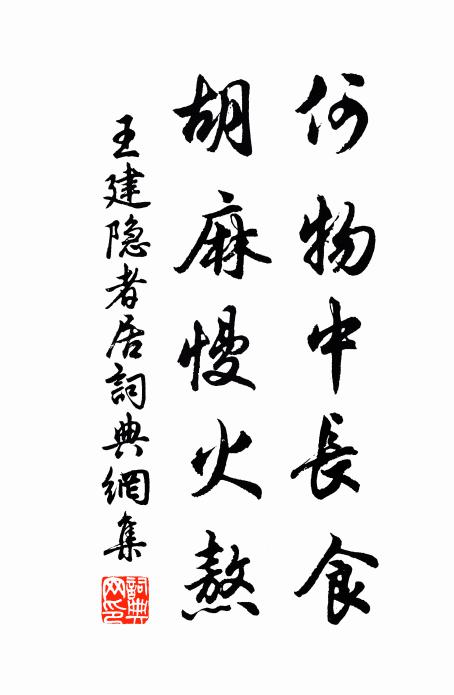 何物中長食
胡麻慢火熬
王建隐者居詞典網集
詞典网印